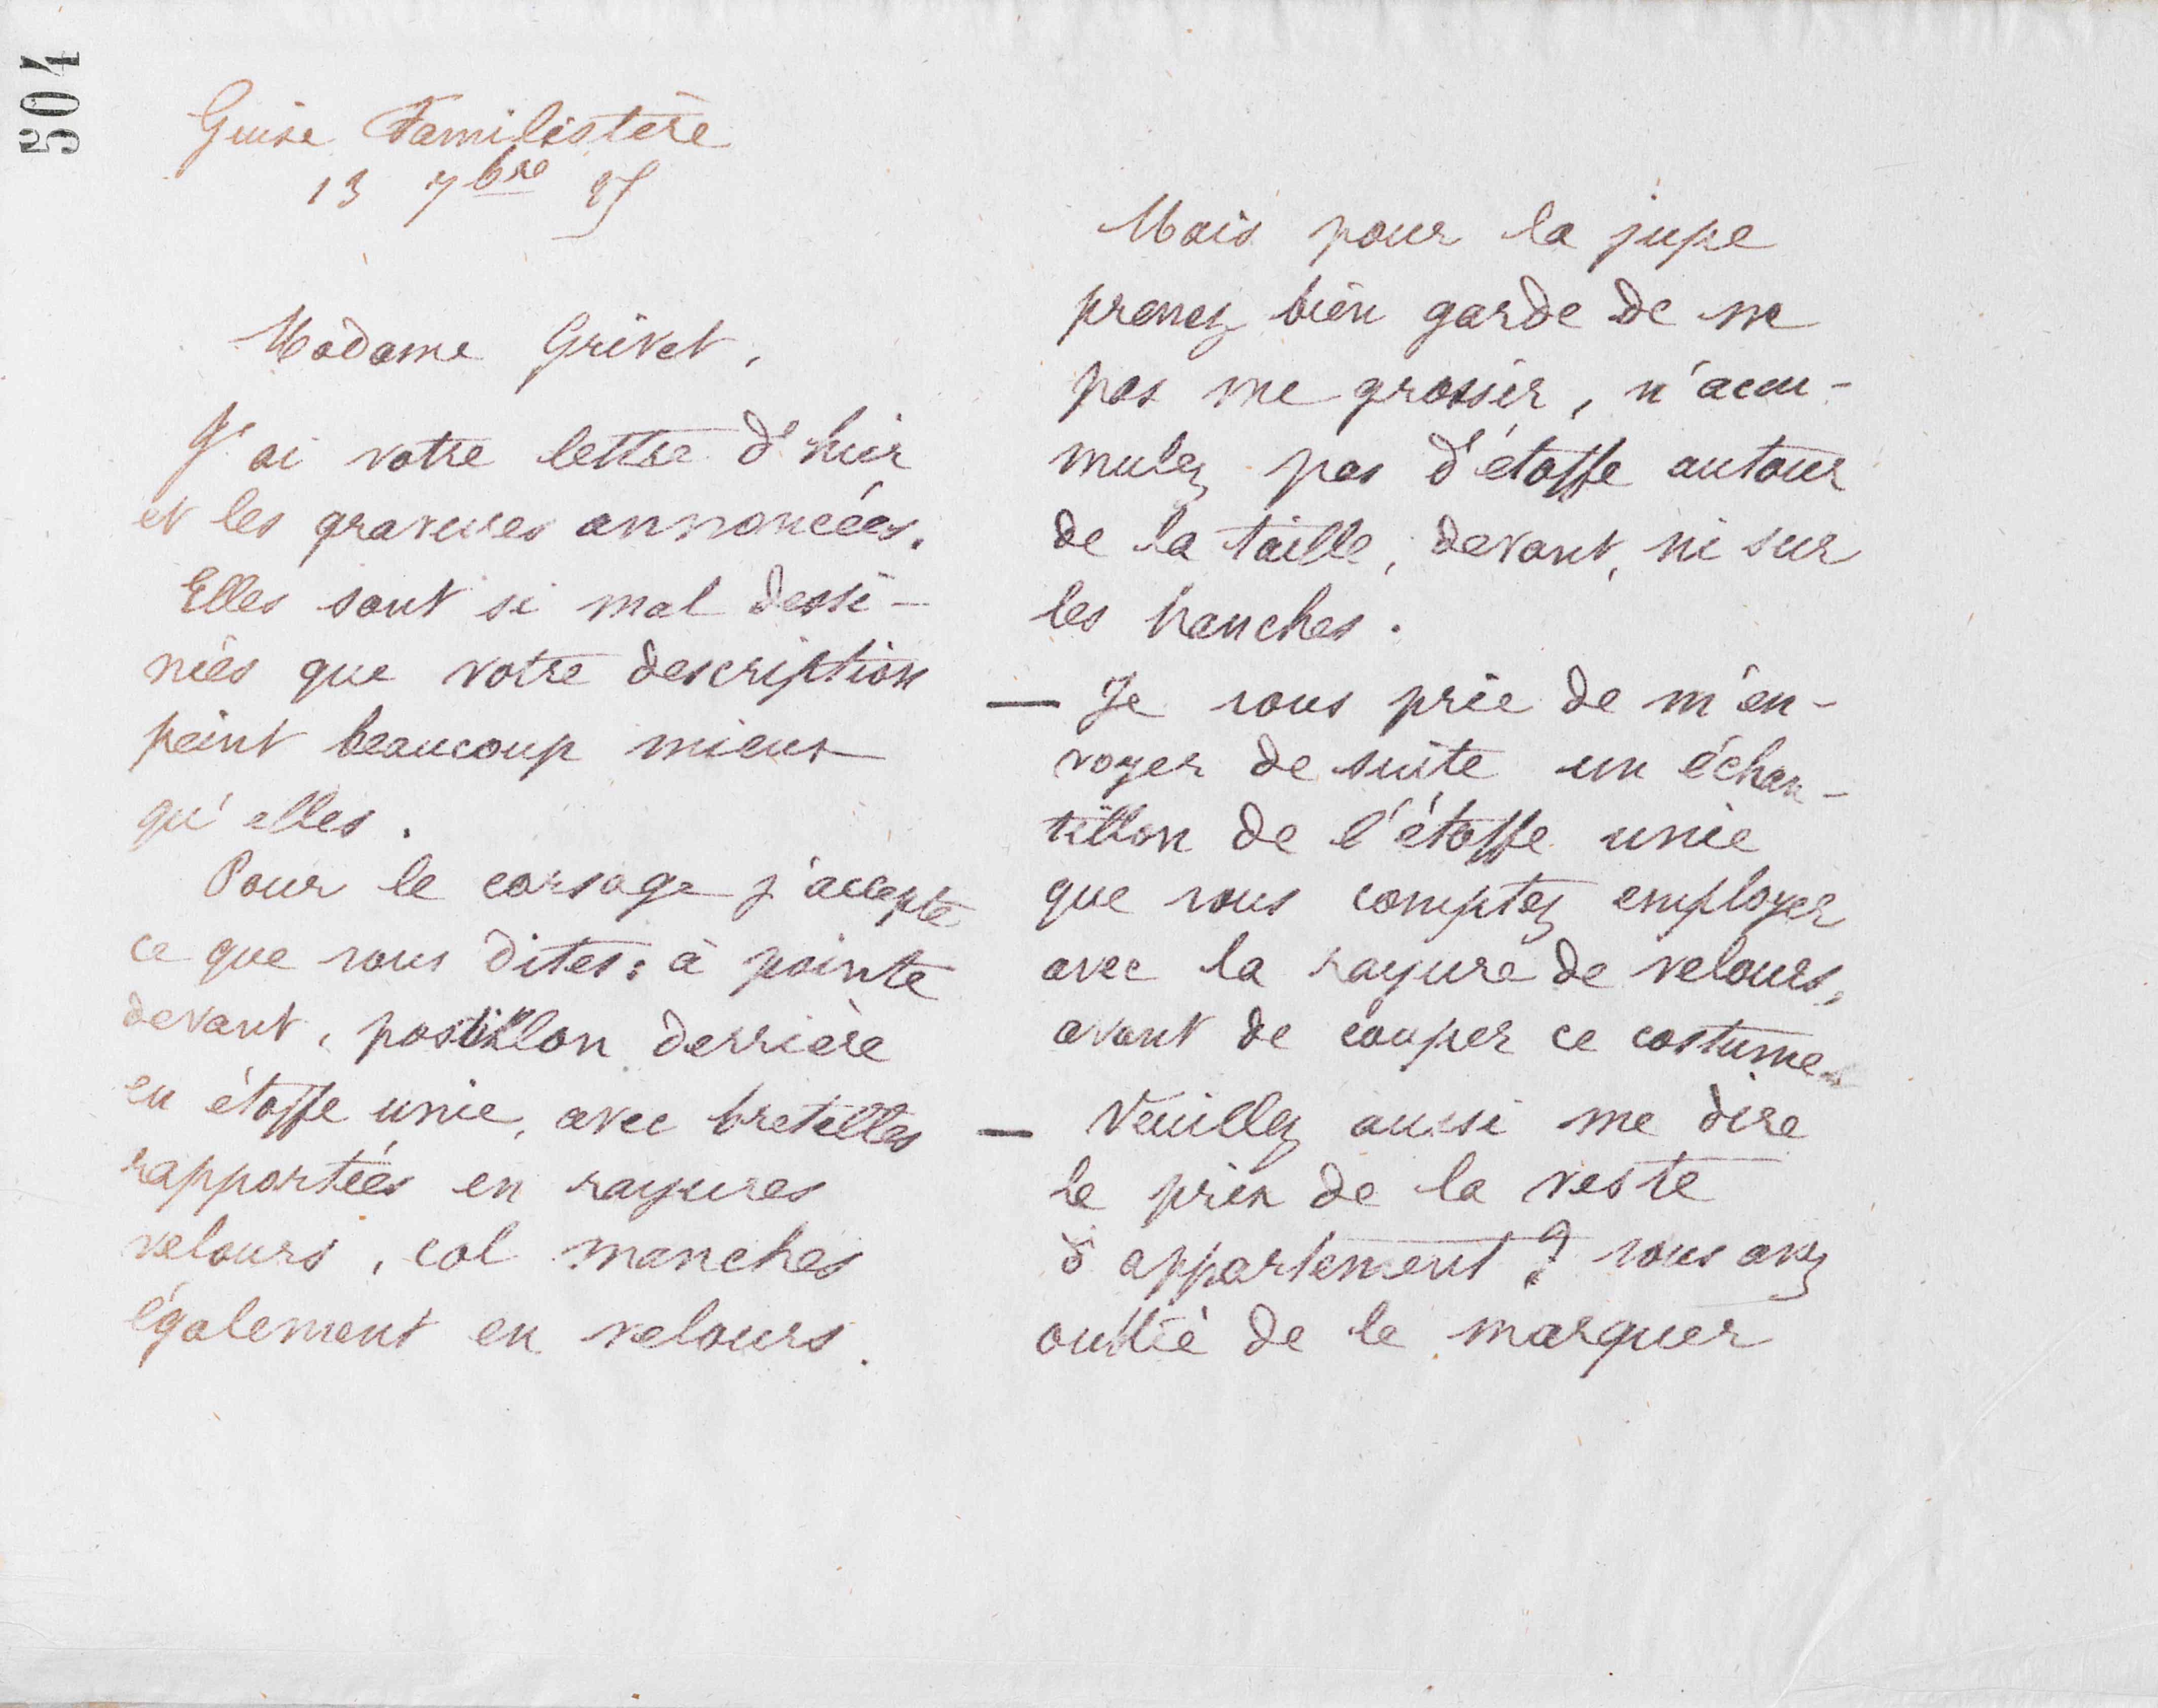 504
Guise Familistère
13 7bre 85
Madame Grivet,
J'ai votre lettre d'hier
et les gravures annoncées.
Elles sont si mal dessi-
nées que votre description
peint beaucoup mieux
qu'elles.
Pour le corsage j'accepte
ce que vous dites : à pointe
devant, postillon derrière
en étoffe unie, avec bretelles
rapportées en rayures
velours, col manches
également en velours.
Mais pour la jupe
prenez bien garde de ne
pas me grossir, n'accu-
mulez pas d'étoffe autour
de la taille, devant, ni sur
les hanches.
— Je vous prie de m'en-
voyer de suite un échan-
tillon de l'étoffe unie
que vous comptez employer
avec la rayure de velours,
avant de couper ce costume.
— Veuillez aussi me dire
le prix de la veste
d'appartement ? vous avez
oublié de le marquer